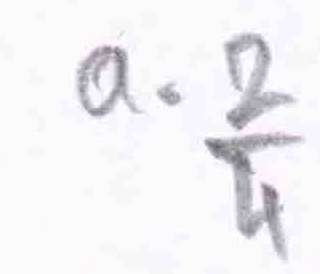 a. 2/4